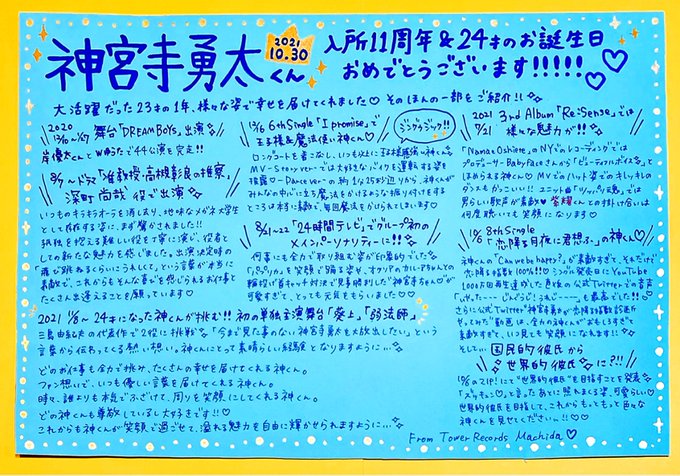 神宮寺勇太くん
2021
10.30
入所11周年&24才のお誕生日
おめでとうございます!!!!!
大活躍だった23才の1年、様々な姿で幸せを届けてくれました♡ そのほんの一部をご紹介!!
2020
舞台「DREAM BOYS」出演
岸優太くんとWゆうたで44公演を完走!!
ドラマ「准教授・高槻彰良の推察」
深町尚哉 役で出演
いつものキラキラオーラを消しおり、地味なメガネ大学生
として存在する姿に、まず驚かされました!!
孤独を抱える難しい役を丁寧に演じ、役者と
しての新たな魅力を感じました。出演決定時の
言葉が本当に
素敵で、これからもそんな喜びを感じられるお仕事と
たくさん出逢えることを願っています♡
2021 11/8〜24才になった神くんが挑む!! 初の単独主演舞台「葵上」「弱法師」
三島由紀夫の代表作で2役に挑戦
「今まで見た事のない神宮寺勇太を大放出したい」という
言葉から伝わってくる熱い想い。神くんにとって素晴らしい経験となりますように…
どのお仕事も全力で挑み、たくさんの幸せを届けてくれる神くん。
ファン想いで、いつも優しい言葉を届けてくれる神くん。
時々、誰よりも本気でふざけて、周りを笑顔にしてくれる神くん。
どの神くんも尊敬しているし大好きです!!♡
これからも神くんが笑顔で過ごせて、溢れる魅力を自由に輝かせられますように…
12/16 6th Single「I promise」で
王子様&魔法使い神くん♡
ジングウジック!!
ロングコートを着こなし、いつも以上に王子様感強い神くん
MV-Story ver-では大好きなバイクを運転する姿を
披露♡-Dance ver-の約1分25秒辺りから、神くんが
みんなの中に立ち魔法をかけるような振り付けをする
ところは本当に素敵で、毎回魔法をかけられてしまいます♡
8/21〜22「24時間テレビ」でグループ初の
メインパーソナリティーに!!
何事にも全力で取り組む姿が印象的でした
「パプリカ」を笑顔で踊る姿や、
神宮寺ちゃん♡が
可愛すぎて、とっても元気をもらいました♡♡
2021 3rd Album「Re:Sense」では
7/21 様々な魅力が!!
「Namae Oshiete」のNYでのレコーディングでは
プロデューサーBabyfaceさんから「ビューティフルボイスを」と
ほめられる神くん♡ MVでのハット姿でのキレキレの
ダンスもかっこいい!! ユニット曲「ツッパリ魂」では
男らしい歌声が素敵♡
何度聴いても笑顔になります♡
10/6 8th Single
「恋降る月夜に君想ふ」の神くん♡
神くんの"Can we be happy?"が素敵すぎて、それだけで
恋降る指数も100%!!♡ シングル発売日にYouTube
1000万回再生達成した
公式Twitterでの音声
も最高でした!!
さらに公式Twitter神宮寺勇太が
動画"は、全力の神くんがおもしろすぎて
素敵すぎて、いつ見ても笑顔になります!!
そして… 国民的彼氏から
世界的彼氏に?!!
ZIP!にて"世界的彼氏"を目指すことを発表
と言ったあとに照れまくる姿、可愛らしい♡
世界的彼氏を目指して、これからもっともっと色々な
神くんを見せてください!!♡♡
From Tower Records Machida♡